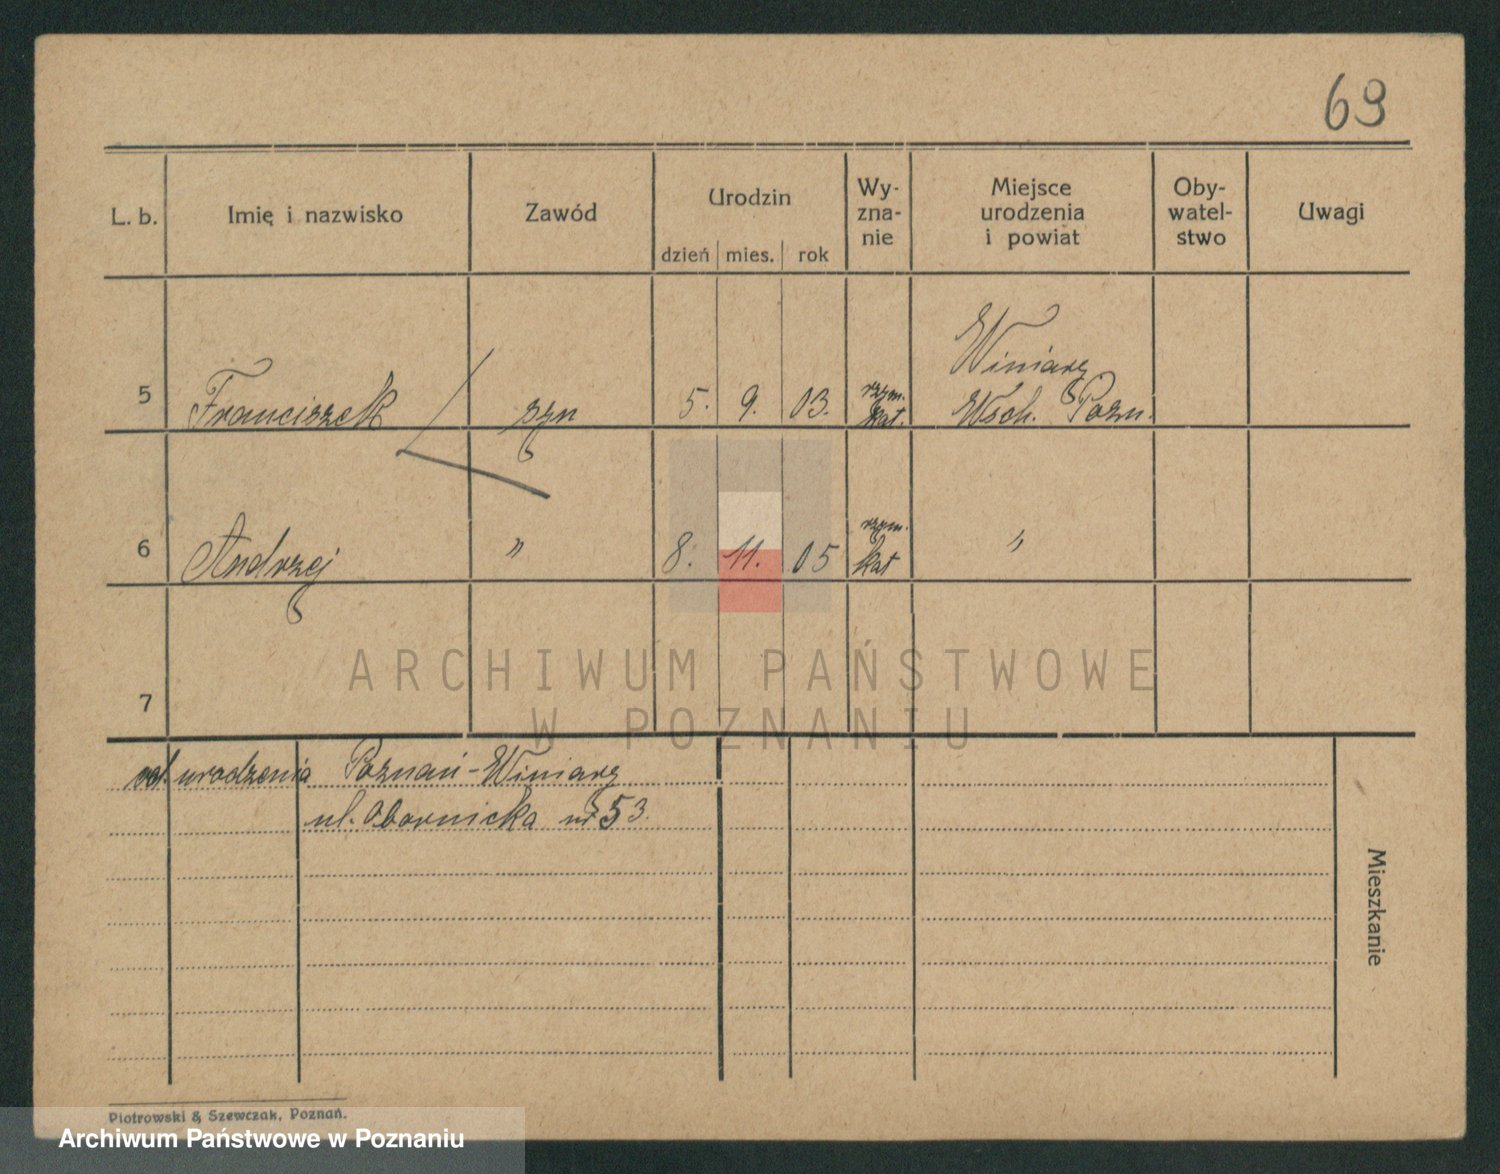 69
L. b.
Imię i nazwisko
Zawód
Urodzin
dzień mies. rok
Wy-
zna-
nie
Miejsce
urodzenia
i powiat
Oby-
watel-
stwo
Uwagi
5 Franciszek syn 5. 9. 03. rzym. kat. Winiary
Wsch. Pozn.
6 Andrzej " 8. 11. 05 rzym. kat "
7
ARCHIWUM PAŃSTWOWE
W POZNANIU
od urodzenia Poznań-Winiary
ul. Obornicka nr 53.
Mieszkanie
Piotrowski & Szewczak, Poznań.
Archiwum Państwowe w Poznaniu